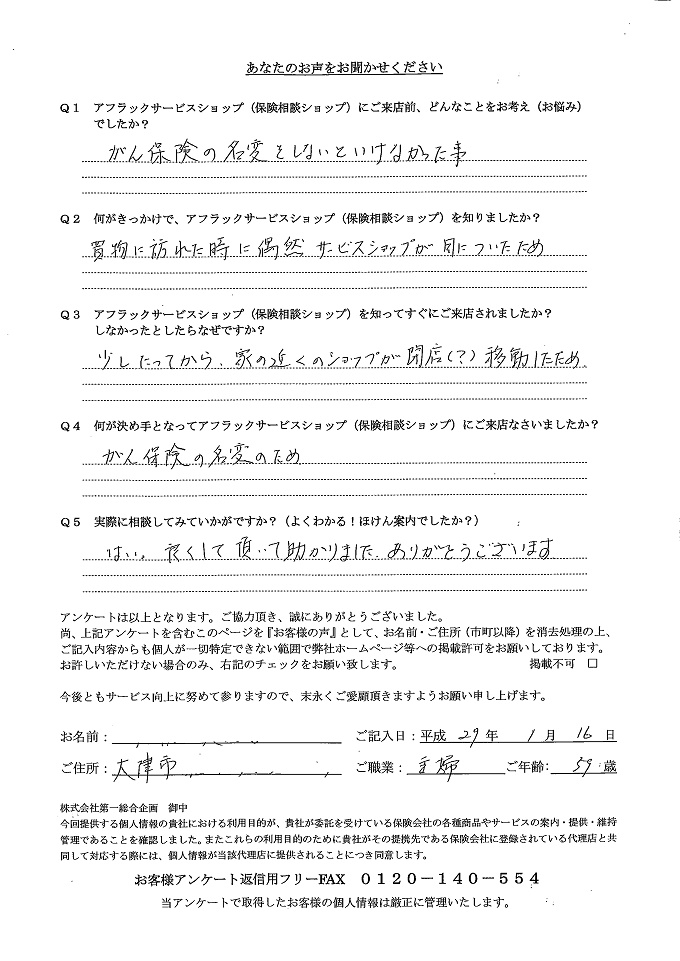 あなたのお声をお聞かせください
Q1 アフラックサービスショップ（保険相談ショップ）にご来店前、どんなことをお考え（お悩み）
でしたか？
がん保険の名変をしないといけなかった事
Q2 何がきっかけで、アフラックサービスショップ（保険相談ショップ）を知りましたか？
買物に訪れた時に偶然サービスショップが目についたため
Q3 アフラックサービスショップ（保険相談ショップ）を知ってすぐにご来店されましたか？
しなかったとしたらなぜですか？
少したってから、家の近くのショップが閉店(?)移動したため。
Q4 何が決め手となってアフラックサービスショップ（保険相談ショップ）にご来店なさいましたか？
がん保険の名変のため
Q5 実際に相談してみていかがですか？（よくわかる！ほけん案内でしたか？）
はい。良くして頂いて助かりました。ありがとうございます
アンケートは以上となります。ご協力頂き、誠にありがとうございました。
尚、上記アンケートを含むこのページを『お客様の声』として、お名前・ご住所（市町以降）を消去処理の上、
ご記入内容からも個人が一切特定できない範囲で弊社ホームページ等への掲載許可をお願いしております。
お許しいただけない場合のみ、右記のチェックをお願い致します。 掲載不可 □
今後ともサービス向上に努めて参りますので、末永くご愛顧頂きますようお願い申し上げます。
お名前： ご記入日：平成 29 年 1 月 16 日
ご住所： 大津市 ご職業： 主婦 ご年齢： 59 歳
株式会社第一総合企画 御中
今回提供する個人情報の貴社における利用目的が、貴社が委託を受けている保険会社の各種商品やサービスの案内・提供・維持
管理であることを確認しました。またこれらの利用目的のために貴社がその提携先である保険会社に登録されている代理店と共
同して対応する際には、個人情報が当該代理店に提供されることにつき同意します。
お客様アンケート返信用フリーFAX 0120－140－554
当アンケートで取得したお客様の個人情報は厳正に管理いたします。